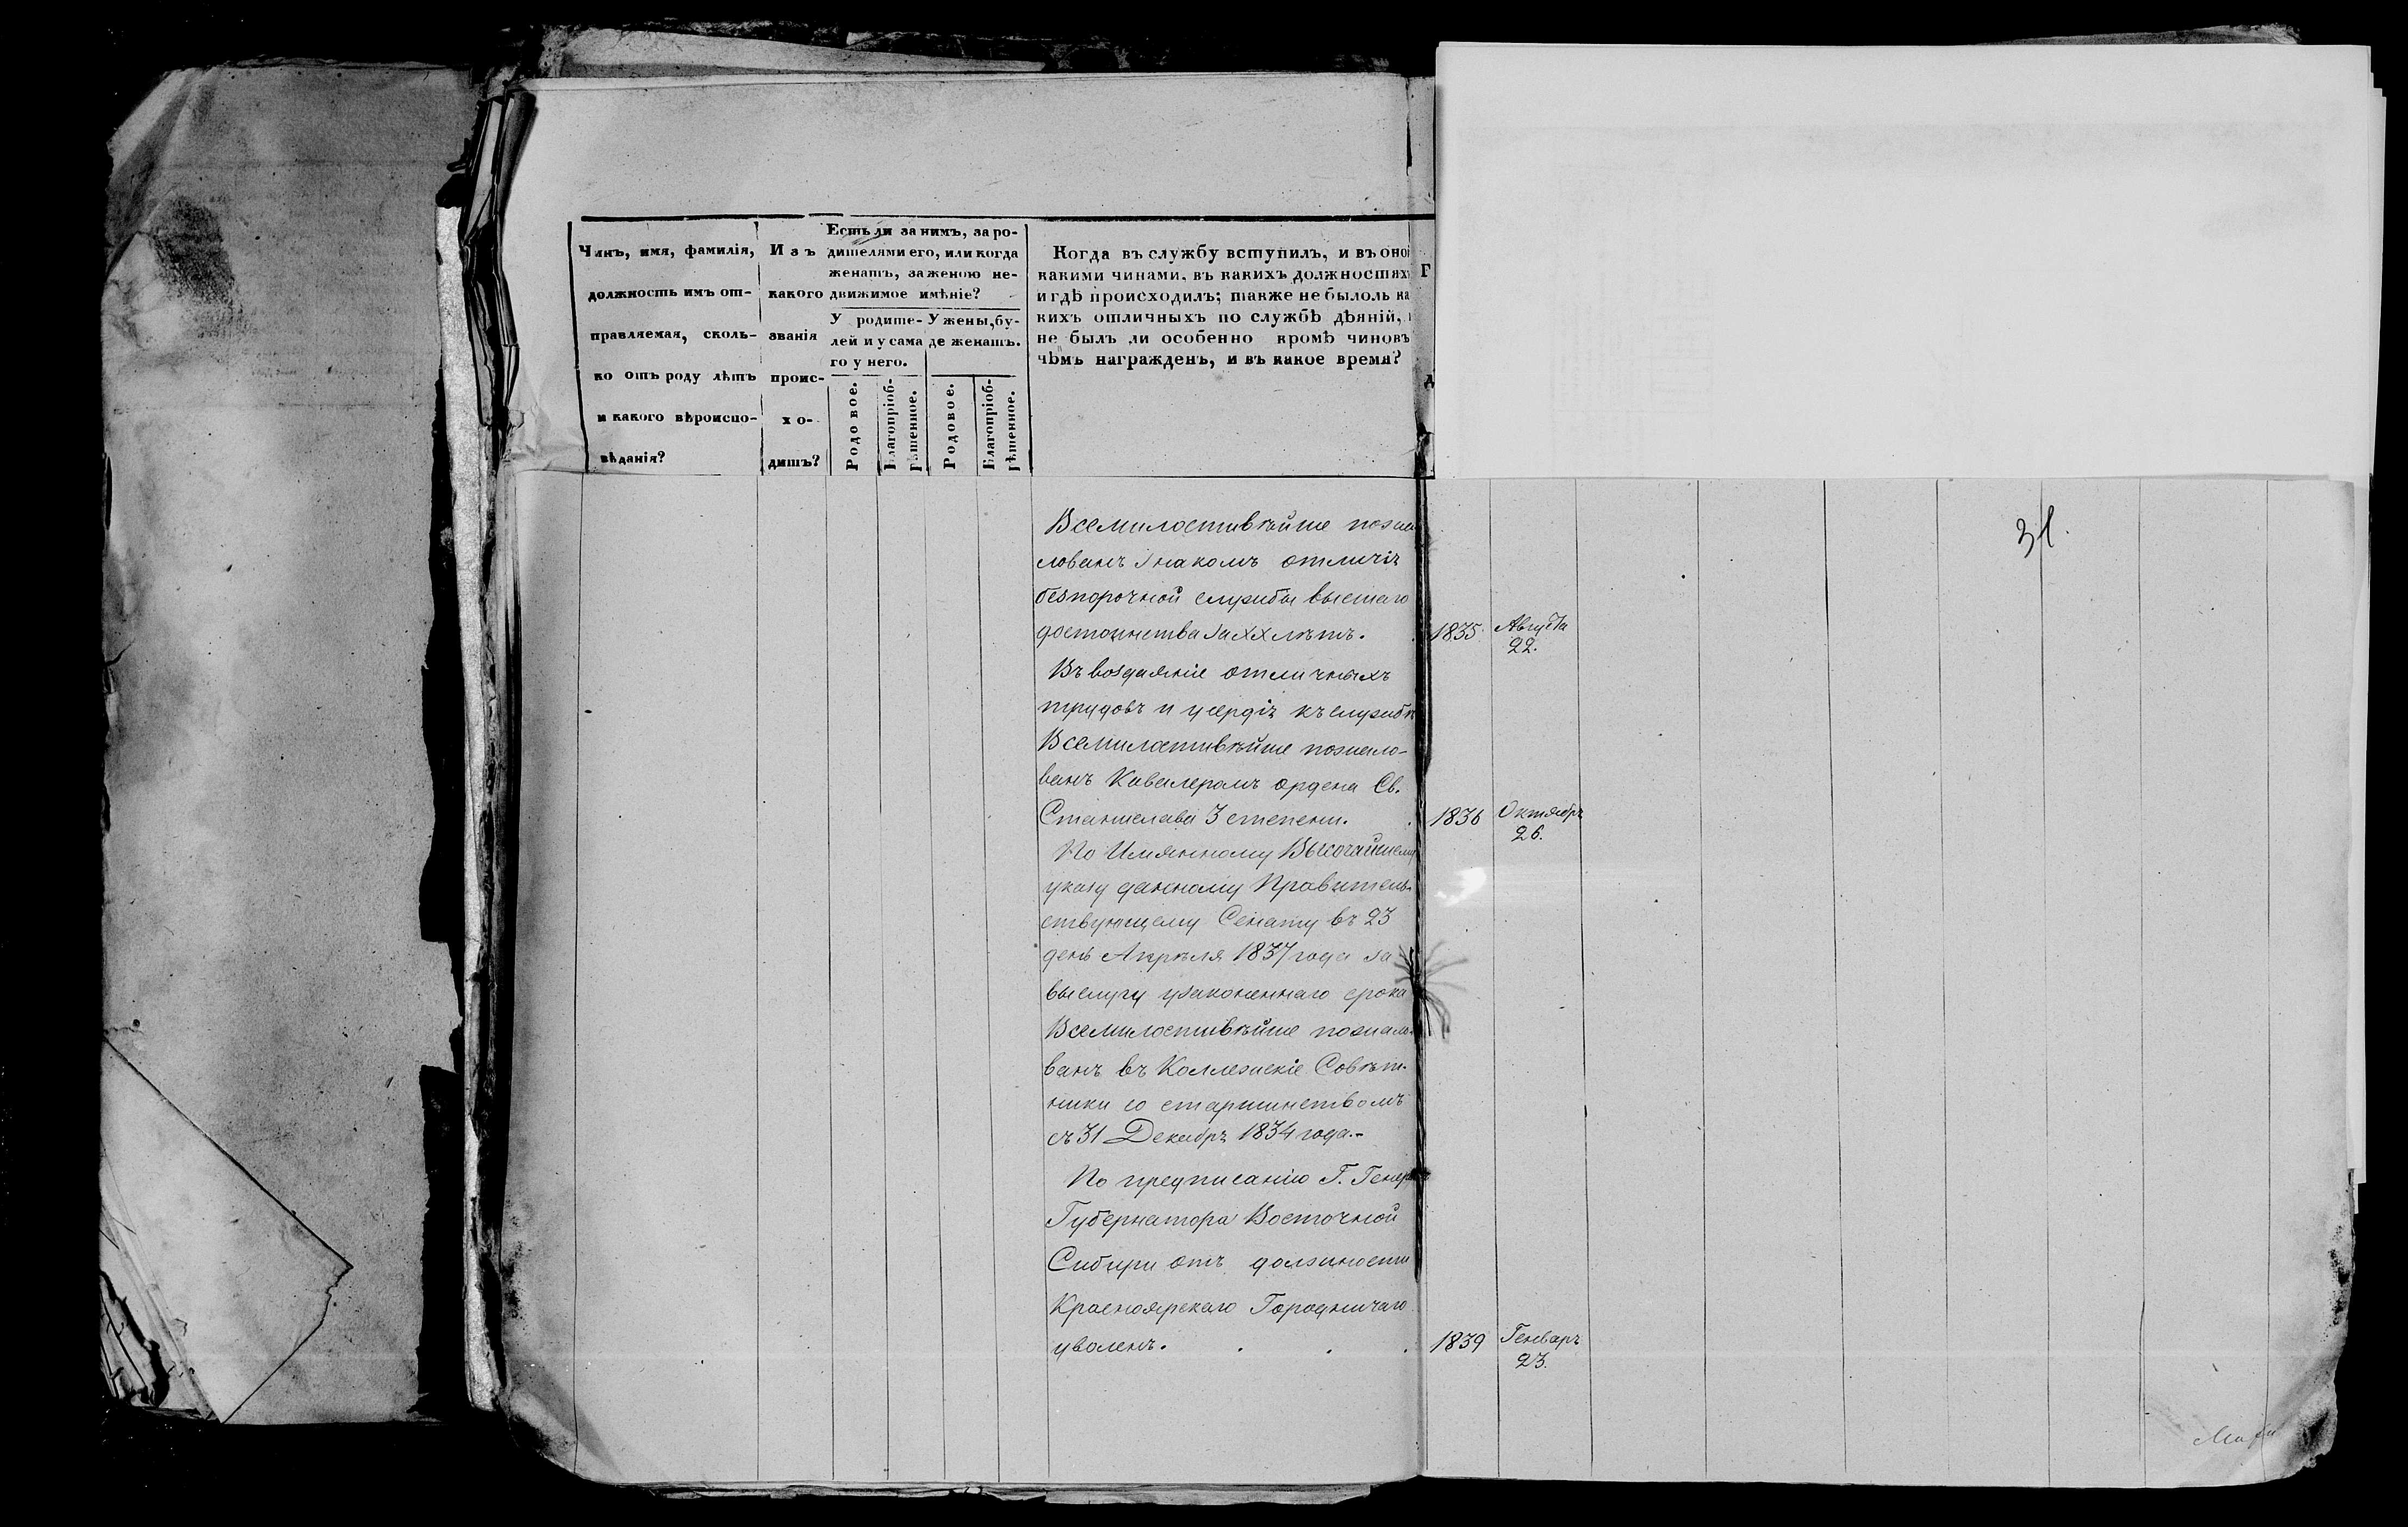 Чинъ, имя, фамилія,
должность имъ от-
правляемая, сколь-
ко отъ роду лѣтъ
и какого вѣроиспо-
вѣданія?
Изъ
какого
званія
проис-
хо-
дитъ?
Есть ли за нимъ, за ро-
дителями его, или когда
женатъ, за женою не-
движимое имѣніе?
У родите-
лей и у сама
го у него.
У жены, бу-
де женатъ.
Родовое.
Благопріоб-
рѣтенное.
Родовое.
Благопріоб-
рѣтенное.
Когда въ службу вступилъ, и въ оной
какими чинами, въ какихъ должностяхъ
и гдѣ происходилъ; также не было ль ка
кихъ отличныхъ по службѣ дѣяній, и
не былъ ли особенно кромѣ чиновъ
чѣмъ награжденъ, и въ какое время?
Г
д
31.
Всемилостивѣйше пожа
лованъ знакомъ отличія
безпорочной службы высшаго
достоинства за XX лѣтъ. 1835. Августа
22.
Въ воздаяніе отличныхъ
трудовъ и усердія къ службѣ
Всемилостивѣйше пожало-
ванъ Кавалеромъ ордена Св.
Станислава 3 степени. 1836 Октября
26.
По Имянному Высочайшему
указу данному Правитель-
ствующему Сенату въ 23
день Апрѣля 1837 года за
выслугу узаконеннаго срока
Всемилостивѣйше пожало-
ванъ въ Коллежскіе Совѣт-
ники со старшинствомъ
съ 31 Декабря 1834 года.-
По предписанію Г. Генералъ
Губернатора Восточной
Сибири отъ должности
Красноярскаго Городничаго
уволенъ. . . . 1839 Генваря
23.